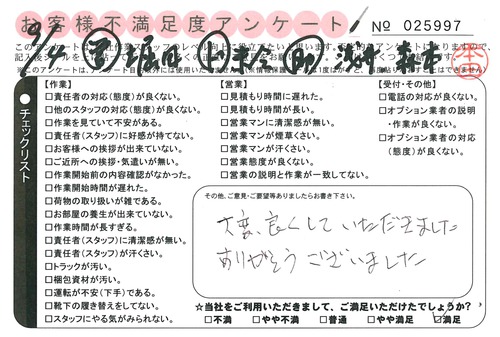 お客様不満足度アンケート
No 025997
9/4
チェックリスト
【作業】
□責任者の対応(態度)が良くない。
□他のスタッフの対応(態度)が良くない。
□作業を見ていて不安がある。
□責任者(スタッフ)に好感が持てない。
□お客様への挨拶が出来ていない。
□ご近所への挨拶・気遣いが無い。
□作業開始前の内容確認がなかった。
□作業開始時間が遅れた。
□荷物の取り扱いが雑である。
□お部屋の養生が出来ていない。
□作業時間が長すぎる。
□責任者(スタッフ)に清潔感が無い。
□責任者(スタッフ)が汗くさい。
□トラックが汚い。
□梱包資材が汚い。
□運転が不安(下手)である。
□靴下の履き替えをしてない。
□スタッフにやる気がみられない。
【営業】
□見積もり時間に遅れた。
□見積もり時間が長い。
□営業マンに清潔感が無い。
□営業マンが煙草くさい。
□営業マンが汗くさい。
□営業態度が良くない。
□営業の説明と作業が一致してない。
【受付・その他】
□電話の対応が良くない。
□オプション業者の説明
・作業が良くない。
□オプション業者の対応
(態度)が良くない。
その他、ご意見・ご要望等ありましたらお書き下さい。
大変、良くして いただきました
ありがとう ございました
☆当社をご利用いただきまして、ご満足いただけたでしょうか?
□不満 □やや不満 □普通 □やや満足 □満足